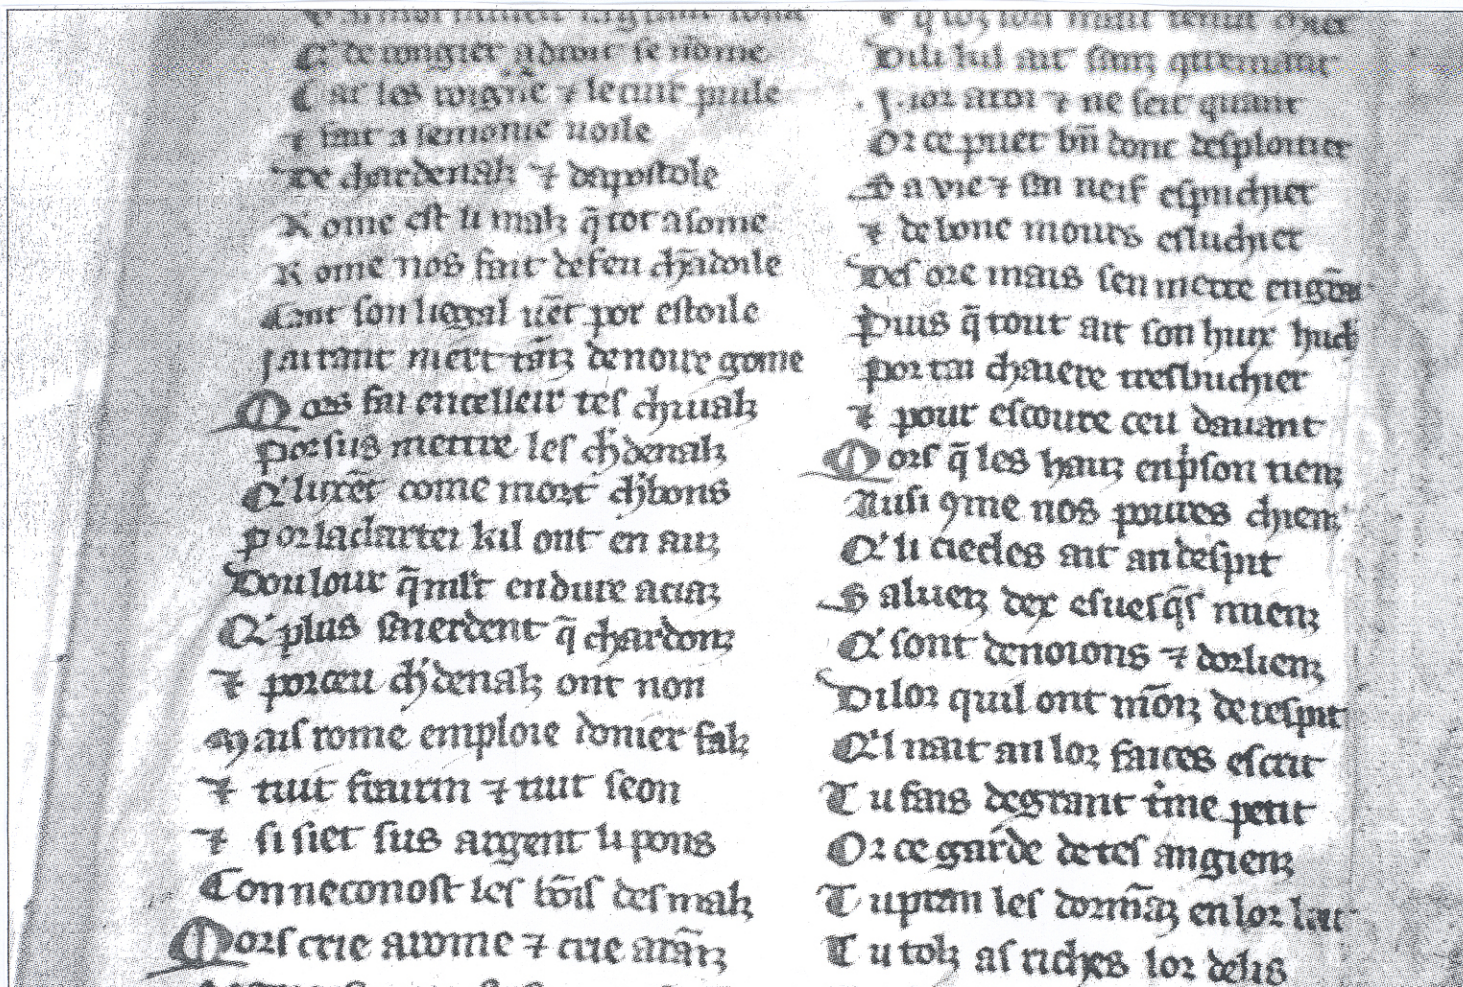 C' de rongier a droit se nōme
Car les roigñe ⁊ le cuir puile
⁊ fait a semonie uoile
De chardenalz ⁊ dapostole
Rome est li malz q̄ tot asome
Rome nos fait de seu chādoile
Cant son liegal uēt por estoile
mort de noure gome
Mors fai enceller tes cheualz
Por sus mettre les ch'denalz
Q' luxēt come mort ch'bons
Por la clartei kil ont en auz
Doulour q̄ ml't endure a ciaz
Q' plus enerdent q̄ chardonz
⁊ por ceu ch'denalz ont non
Mais rome emploie donier falz
⁊ tuit ⁊ tuit seon
⁊ si siet sus argent li pons
Con ne conost les bōis des malz
Mors crie a rome ⁊ crie a rāīz
⁊ q toz ion maint tenut chier
ait sanz
ior aroi ⁊ ne seit quant
Or ce puet bn̄ donc desploitier
Sa vie ⁊ sen neif espuchier
⁊ de bone mours esluchier
Des ore mais sen mette
Puis q̄ tout ait son hux huch
Por tai chaiere tresbuchier
⁊ pour escoure ceu dauant
Mors q̄ les hauz enp'son tienz
Ausi 9me nos poures chienz
Q' li ciecles ait an despit
Saluez dex esuesq̄s miienz
Q' sont denoions ⁊ dorlienz
Di lor quil ont mōiz de respit
Q'l nait an lor faices escrit
Tu fens de grant t'me petit
Or ce garde de tes angienz
Tu pren les dorm̄āz en lor lait
Tu tolz as riches lor delis